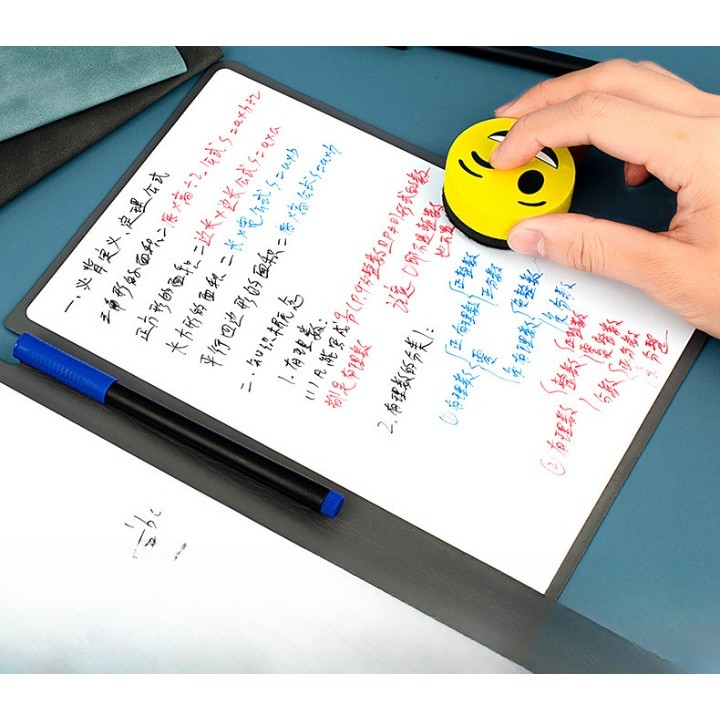 一. 必背定义、定理公式
三角形的面积=底×高÷2. 公式 S=a×h÷2
正方形的面积=边长×边长 公式 S=a×a
长方形的面积=长×宽 公式 S=a×b
平行四边形的面积=底×高 公式 S=a×h
二. 知识术概念
1. 有理数:
(1) 凡能写成 形式的数
都是有理数
注意 0即不是正数
也不是
2. 有理数的分类:
① 有理数 正有理数 正整数
正分数
零
负有理数 负整数
负分数
② 有理数 整数 正整数
零
负整数
分数 正分数